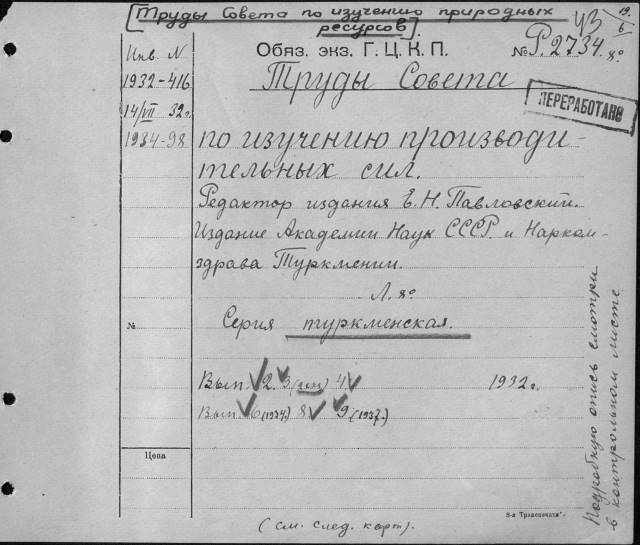 [Труды Совета по изучению природных
ресурсов].
УЗ 19/6
Обяз. экз. Г. Ц. К. П.
№ Р. 2734. 8°
Инв. N
1932-416
14/VII 32г.
1934-98
Труды Совета
ПЕРЕРАБОТАНО
по изучению производи-
тельных сил.
Редактор издания Е. Н. Павловский.
Издание Академии Наук СССР. и Нарком-
здрава Туркмении.
Л. 8°
№
Серия туркменская.
Вып. 2. 3 4 1932г.
Вып. 6 (1934) 8 9 (1937.)
Цена
8-я Транспечати
(см. след. карт).
Подробную опись смотри
в контрольном листе